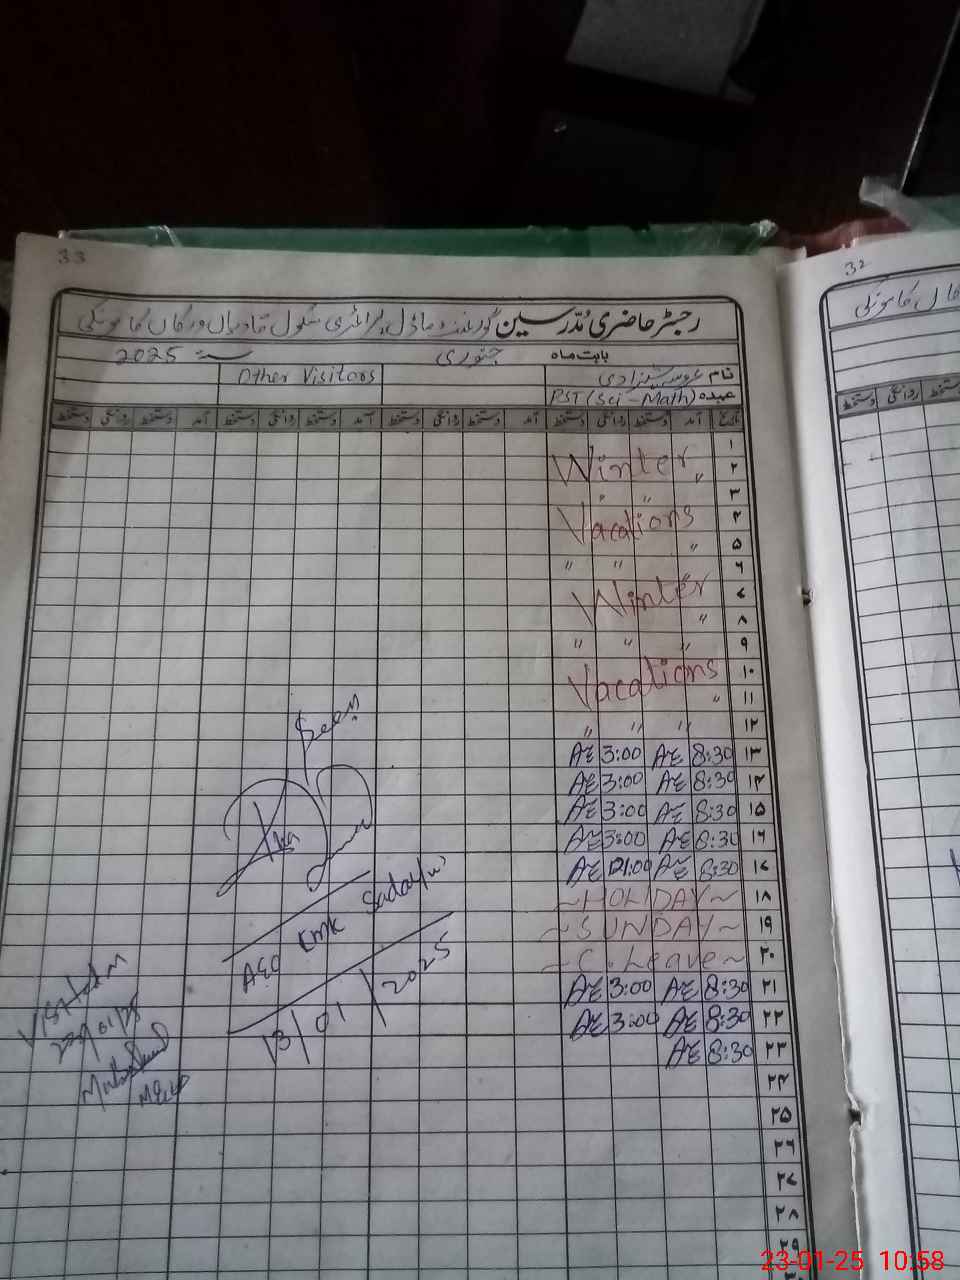 33
32
رجسٹر حاضری مدرسین گورنمنٹ ماڈل پرائمری سکول قادیاں ورکاں کامونکی
بابت ماہ جنوری سنہ 2025
نام عروسہ شہزادی
Other Visitors
عہدہ PST (Sci-Math)
تاریخ آمد دستخط روانگی دستخط آمد دستخط روانگی دستخط آمد دستخط روانگی دستخط
دستخط روانگی دستخط
۱
Winter
۲ "
۳ " "
Vacations
۴
۵ "
۶ " "
Winter
۷
۸ "
۹ " " "
Vacations
۱۰
۱۱ "
۱۲ " " "
۱۳ 8:30 AE 3:00 AE
۱۴ 8:30 AE 3:00 AE
۱۵ 8:30 AE 3:00 AE
۱۶ 8:30 AE 3:00 AE
۱۷ 8:30 AE 12:00 AE
۱۸ ~HOLIDAY~
۱۹ ~SUNDAY~
۲۰ ~C.Leave~
۲۱ 8:30 AE 3:00 AE
۲۲ 8:30 AE 3:00 AE
۲۳ 8:30 AE
۲۴
۲۵
۲۶
۲۷
۲۸
۲۹
۳۰
Seen
AEO KMK
13/01/2025
23/01/25
23-01-25 10:58